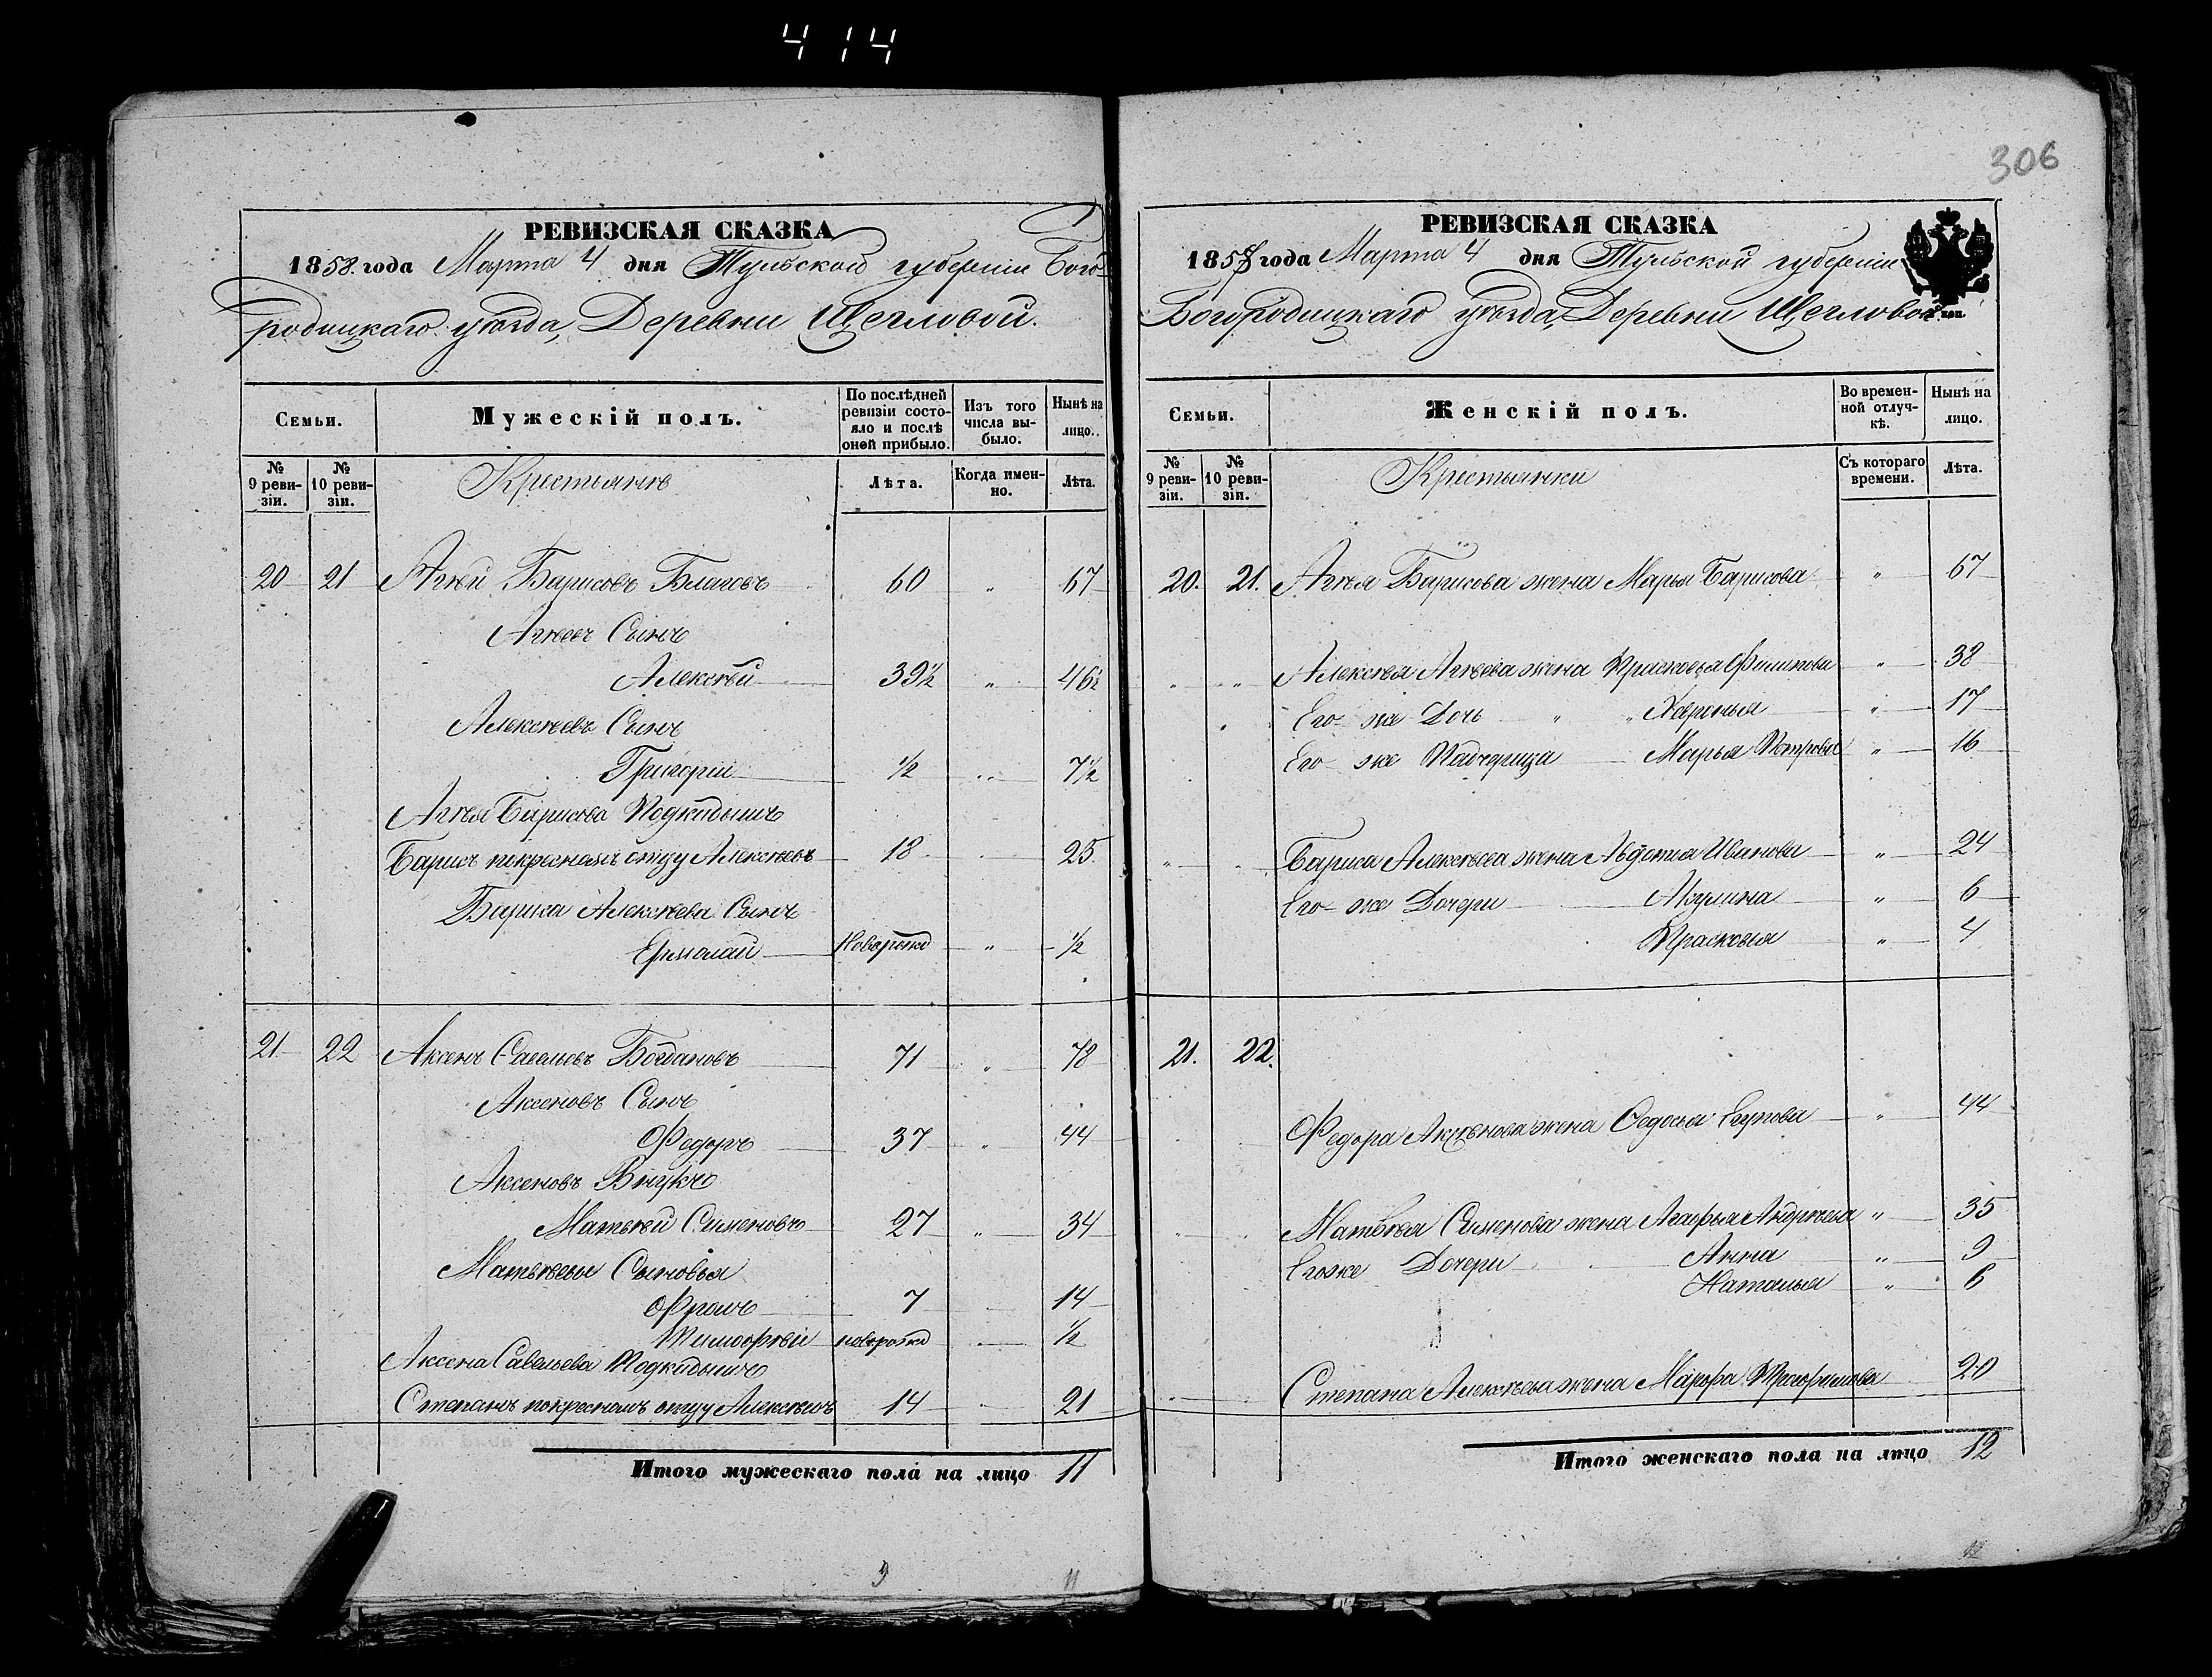 414
306
РЕВИЗСКАЯ СКАЗКА
1858. года Марта 4 дня Тульской губерніи Бого-
родицкаго уѣзда, Деревни Щегловой.
Семьи.
Мужескій полъ.
По послѣдней ревизіи состояло и послѣ оной прибыло.
Изъ того числа выбыло.
Нынѣ на лицо.
№ 9 ревизіи.
№ 10 ревизіи.
Крестьянъ
Лѣта.
Когда именно.
Лѣта.
20 21 Агѣй Барисовъ Благовъ 60 " 67
Агѣевъ Сынъ
Алексѣй 39½ " 46½
Алексѣевъ Сынъ
Григорій ½ " 7½
Агѣя Барисова Подкидышъ
Барисъ покресному отцу Алексѣевъ 18 25.
Бариса Алексѣева Сынъ
Ермолай Новорожд " ½
21 22 Аксенъ Савельевъ Богдановъ 71 " 78
Аксеновъ Сынъ
Федоръ 37 " 44
Аксеновъ Внукъ
Матвѣй Сименовъ 27 " 34
Матвѣевы Сыновья
Фролъ 7 14
Тимофѣй новорожд ½
Аксена Савельева Подкидышъ
Степанъ покресному отцу Алексѣевъ 14 21
Итого мужескаго пола на лицо 11
9 11
РЕВИЗСКАЯ СКАЗКА
1858 года Марта 4 дня Тульской губерніи
Богородицкаго уѣзда, Деревни Щегловой
Семьи.
Женскій полъ.
Во временной отлучкѣ.
Нынѣ на лицо.
№ 9 ревизіи.
№ 10 ревизіи.
Крестьянки
Съ котораго времени.
Лѣта.
20. 21. Агѣя Барисова жена Марья Барисова " 67
" " Алексѣя Агѣева жена Прасковья " 38
Его же Дочь " " Хавронья " 17
Его же Падчерица Марья Петрова " 16
Бариса Алексѣева жена Авдотья Иванова " 24
Его же Дочери Акулина " 6
Прасковья " 4
21. 22.
Федора Аксѣнова жена Федосья Егупова " 44
Матвѣя Сименова жена Агафья Андрѣева " 35
Егоже Дочери Анна " 9
Наталья " 6
Степана Алексѣева жена Марфа Трафимова 20
Итого женскаго пола на лицо 12
12